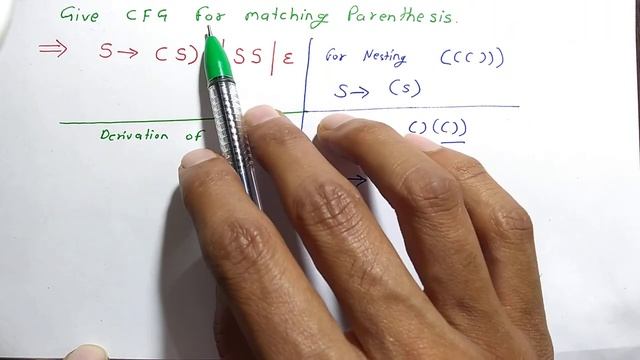 Give CFG for matching Parenthesis.
⇒ S → (S) | SS | ε
for Nesting ((()))
S → (S)
Derivation of
()(())
→